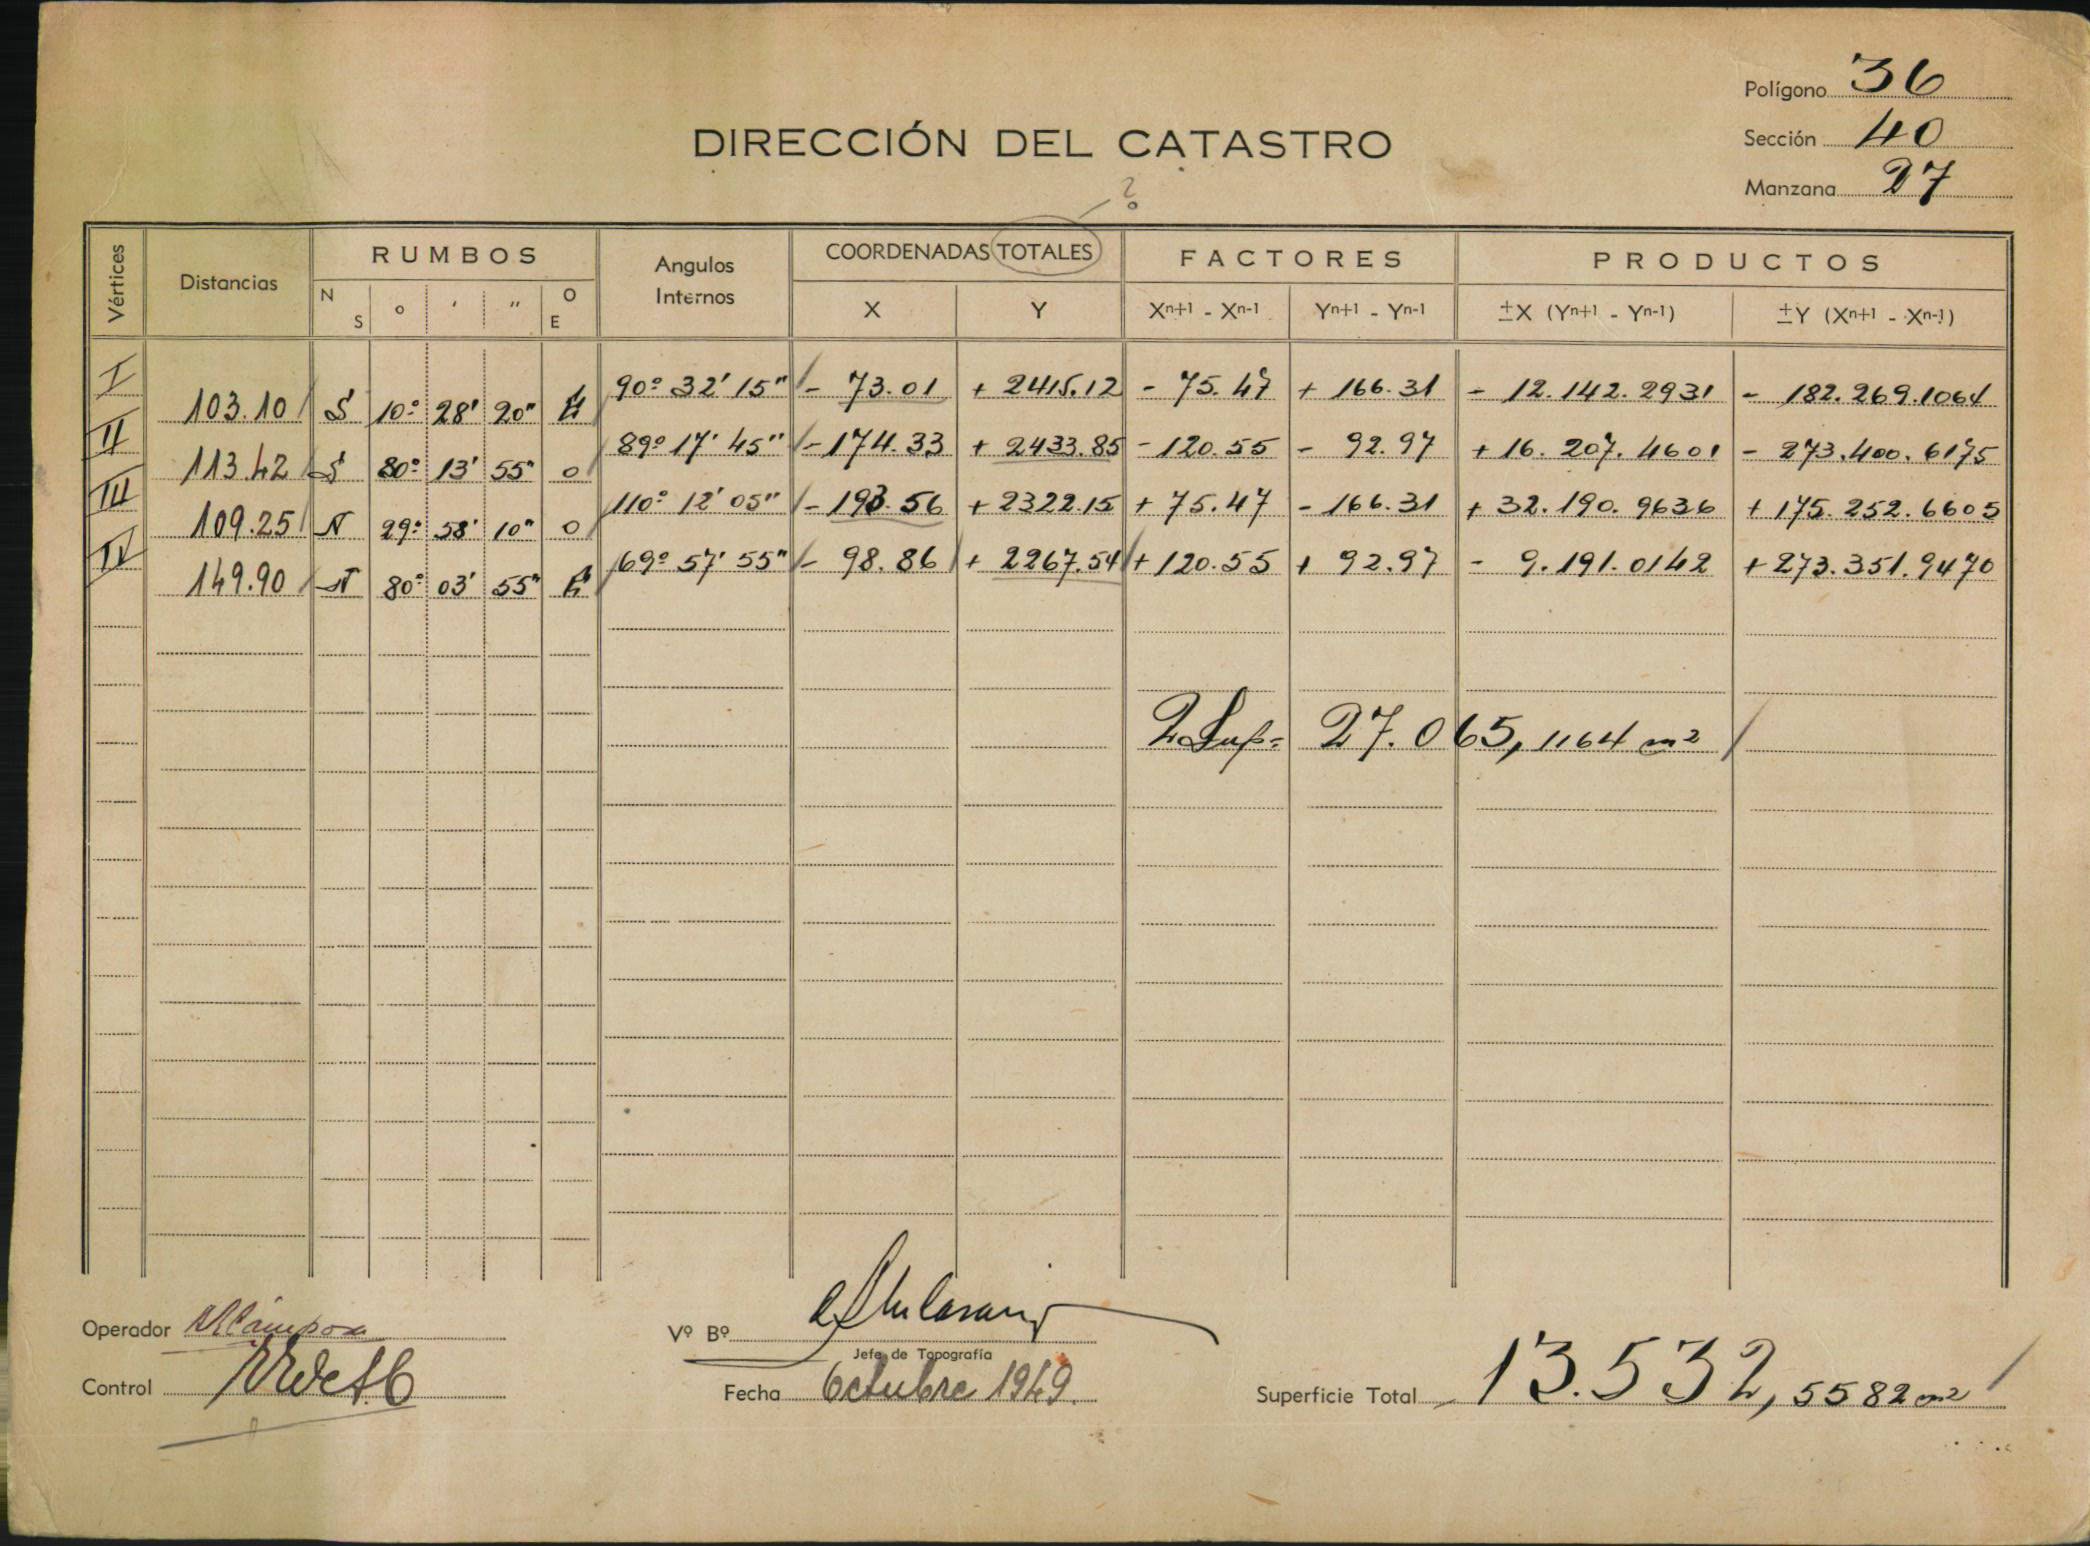 Polígono 36
DIRECCIÓN DEL CATASTRO
Sección 40
Manzana 27
?
Vértices Distancias RUMBOS Angulos Internos COORDENADAS TOTALES FACTORES PRODUCTOS
N S º ' " O E X Y Xn+1 - Xn-1 Yn+1 - Yn-1 ±X (Yn+1 - Yn-1) ±Y (Xn+1 - Xn-1)
I 90º 32' 15" - 73.01 + 2415.12 - 75.47 + 166.31 - 12.142.2931 - 182.269.1064
103.10 S 10º 28' 20" E
II 89º 17' 45" - 174.33 + 2433.85 - 120.55 - 92.97 + 16.207.4601 - 273.400.6175
113.42 S 80º 13' 55" O
III 110º 12' 05" - 193.56 + 2322.15 + 75.47 - 166.31 + 32.190.9636 + 175.252.6605
109.25 N 29º 58' 10" O
IV 69º 57' 55" - 98.86 + 2267.54 + 120.55 + 92.97 - 9.191.0142 + 273.351.9470
149.90 N 80º 03' 55" E
2 Sup= 27.065,1164 m2
Operador
Vº Bº
Jefe de Topografía
Control
Fecha Octubre 1949.
Superficie Total 13.532,5582 m2